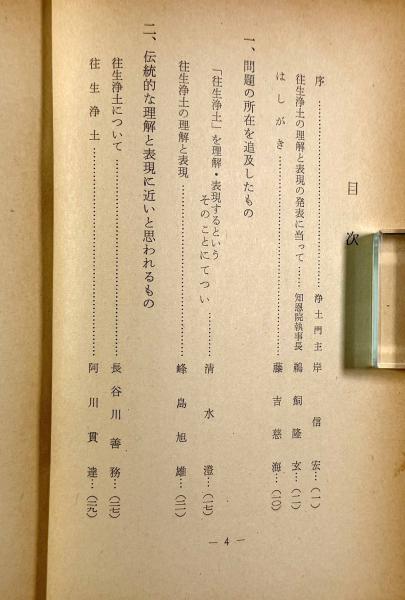 目次
序……………………浄土門主 岸信宏…(一)
往生浄土の理解と表現の発表に当って……知恩院執事長 鵜飼隆玄…(二)
はしがき……………………藤吉慈海…(一〇)
一、問題の所在を追及したもの
「往生浄土」を理解・表現するという
そのことにてつい…………清水澄…(一七)
往生浄土の理解と表現……………………峰島旭雄…(二一)
二、伝統的な理解と表現に近いと思われるもの
往生浄土について……………………長谷川善務…(二七)
往生浄土……………………阿川貫達…(二九)
— 4 —